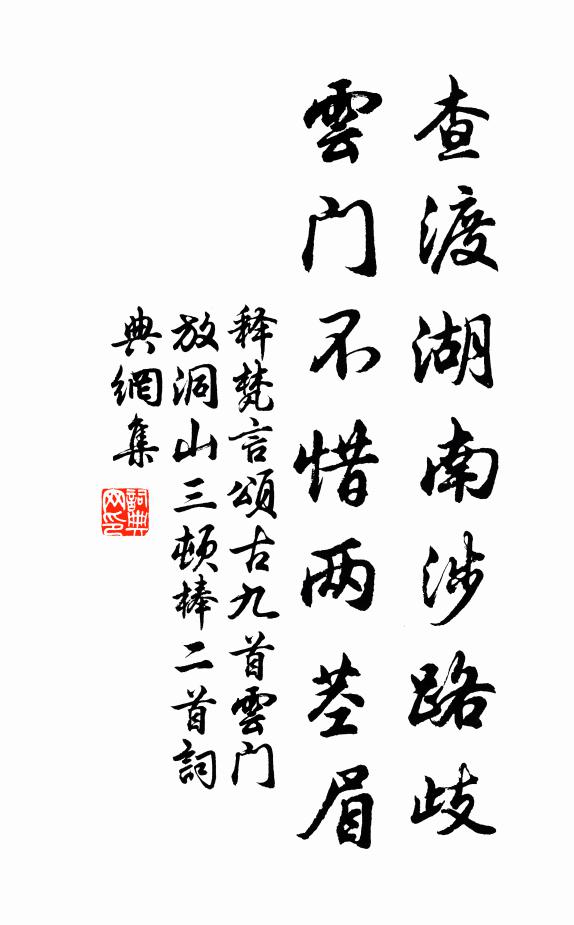 查渡湖南涉路歧
雲门不惜两茎眉
释梵言頌古九首雲门
放洞山三顿棒二首詞
典網集
詞典网印